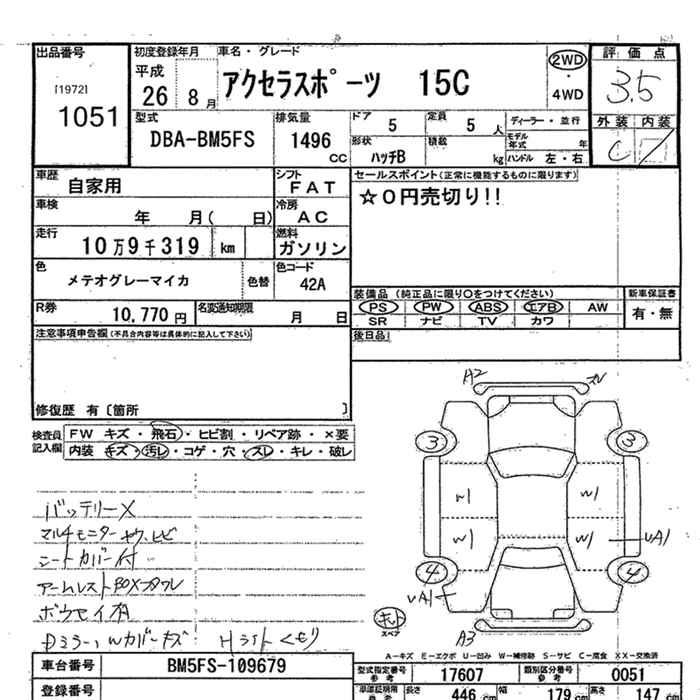 出品番号
[1972]
1051
初度登録年月
平成
26 8月
車名・グレード
アクセラスポーツ 15C
2WD
・
4WD
評価点
3.5
外装 内装
C
型式
DBA-BM5FS
排気量
1496
CC
ドア
5
定員
5人
形状
ハッチB
積載
kg
ディーラー・並行
モデル年式 年
ハンドル 左・右
車歴
自家用
シフト
FAT
車検
年 月( 日)
冷房
AC
走行
10万9千319 km
燃料
ガソリン
色
メテオグレーマイカ
色替
色コード
42A
R券
10,770円
名変通知期限
月 日
セールスポイント(正常に機能するものに限ります)
☆0円売切り!!
装備品(純正品に限り○をつけてください)
PS PW ABS エアB AW
SR ナビ TV カワ
新車保証書
有・無
後日品
注意事項申告欄(不具合内容等は具体的に記入して下さい)
修復歴 有〔箇所 〕
検査員記入欄
FW キズ・飛石・ヒビ割・リペア跡・×要
内装 キズ・汚レ・コゲ・穴・スレ・キレ・破レ
バッテリーX
マルチモニター
シートカバー付
アームレストBOX
Dミラー、Wカバーキズ Hライトくもり
A2
3 3
W1 W1
W1 W1 UA1
4 4
UA1
A3
スペア
A-キズ E-エクボ U-凹み W-補修跡 S-サビ C-腐食 XX-交換済
車台番号
BM5FS-109679
登録番号
型式指定番号
参考
17607
類別区分番号
参考
0051
車庫証明用
参考
長さ 446cm
幅 179cm
高さ 147cm